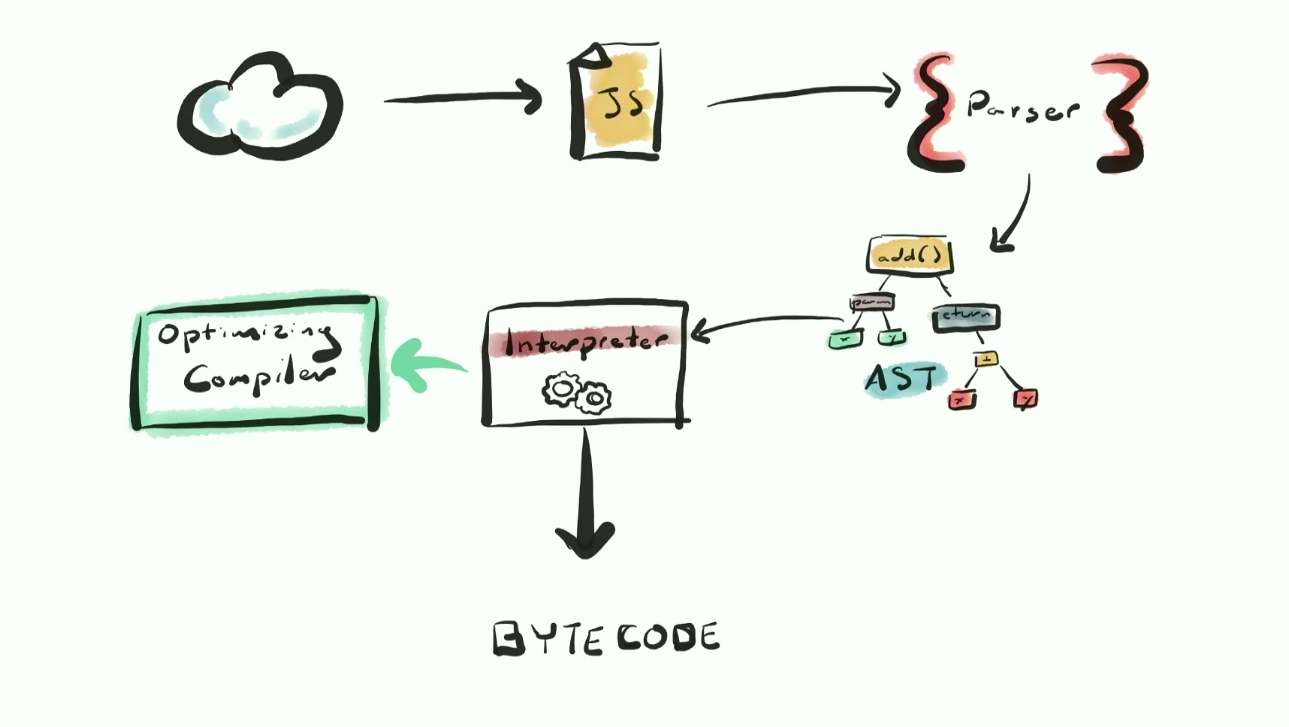 JS
Parser
add()
param
eturn
x
y
+
x
y
AST
Interpreter
Optimizing
Compiler
BYTECODE